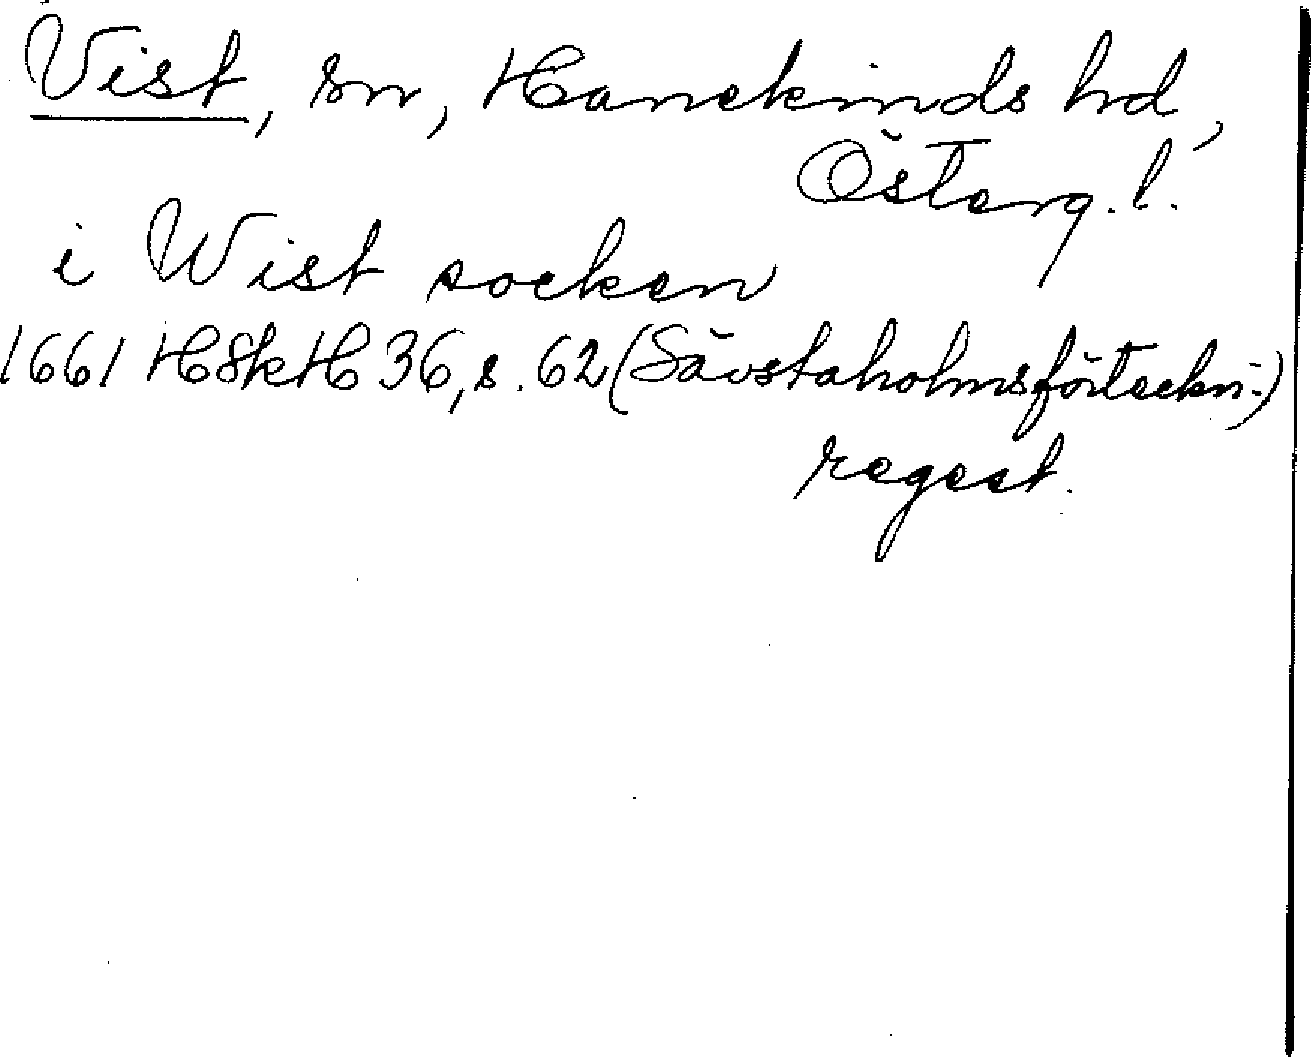 Vist, sn, Hanekinds hd,
Österg.l.
i Wist socken
1661 HSkH 36, s. 62 (Sävstaholmsförteckn.)
regest.